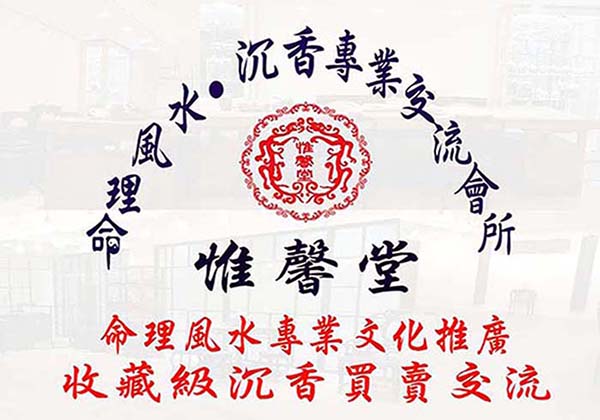 命理風水•沉香專業交流會所
惟馨堂
惟馨堂
命理風水專業文化推廣
收藏級沉香買賣交流